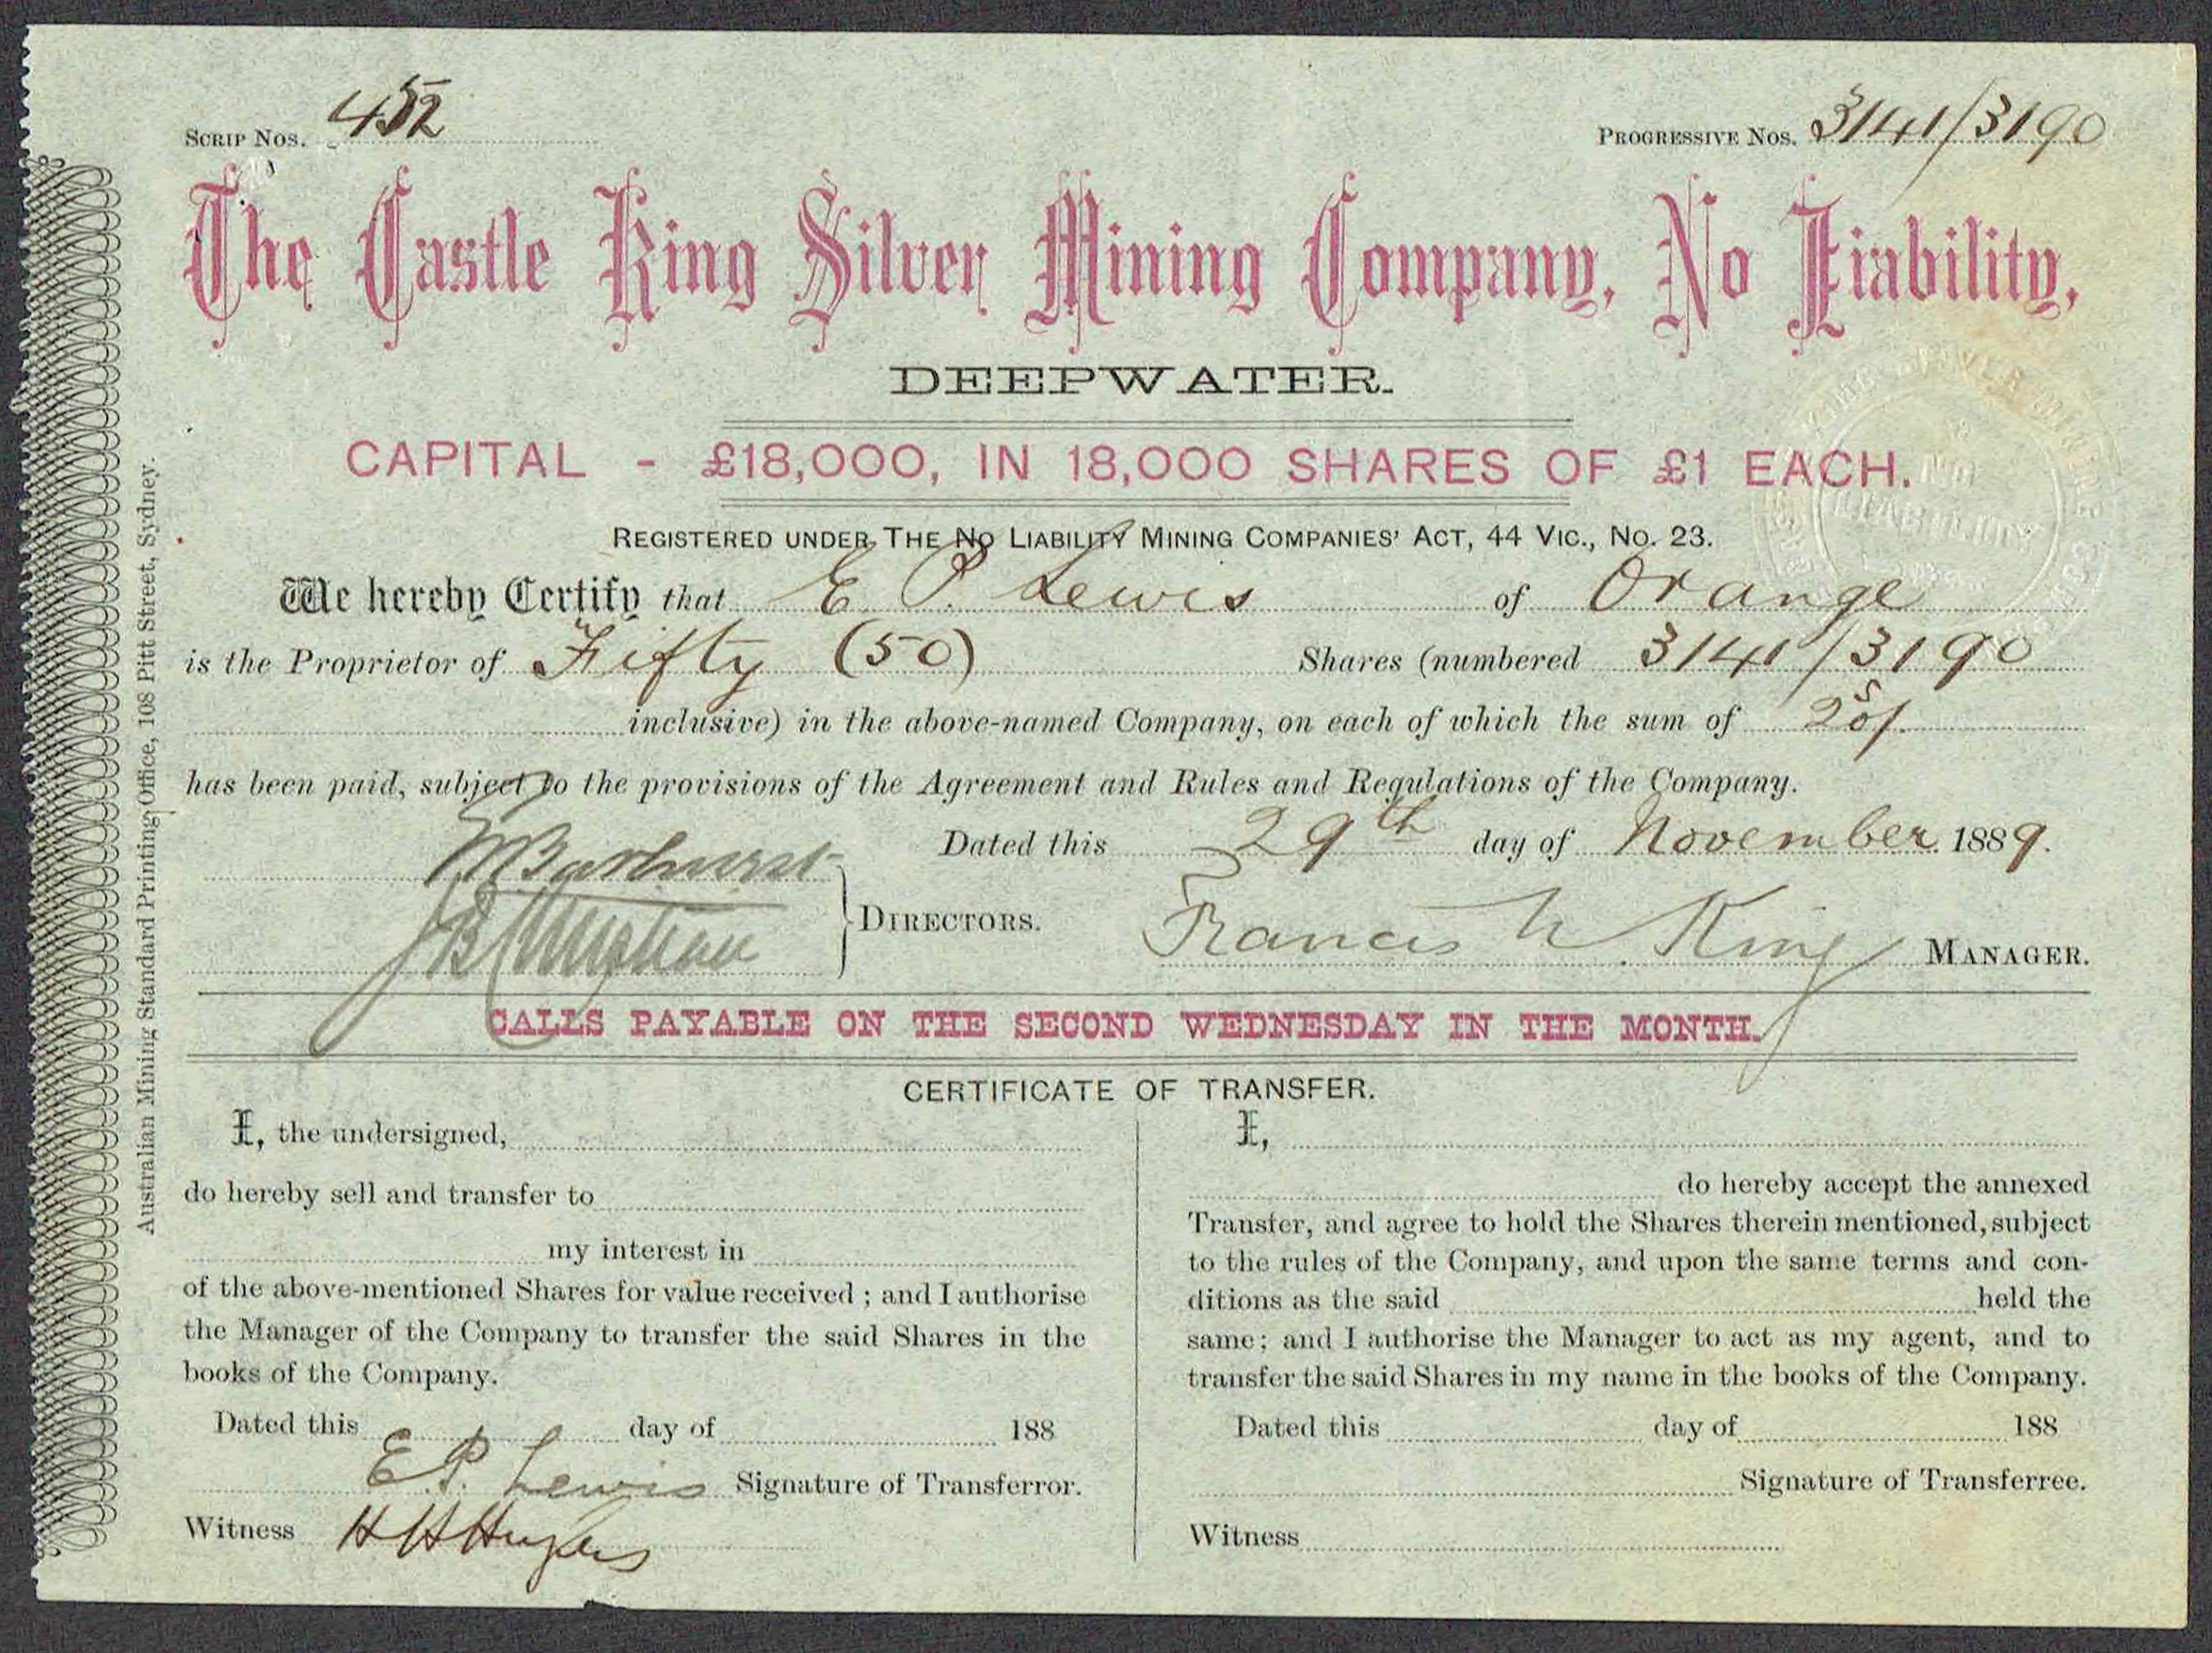 SCRIP NOS. 452
PROGRESSIVE NOS. 3141/3190
The Castle King Silver Mining Company, No Liability,
DEEPWATER.
CAPITAL - £18,000, IN 18,000 SHARES OF £1 EACH.
REGISTERED UNDER THE NO LIABILITY MINING COMPANIES' ACT, 44 VIC., NO. 23.
We hereby Certify that E P. Lewis of Orange
is the Proprietor of Fifty (50) Shares (numbered 3141/3190
inclusive) in the above-named Company, on each of which the sum of
has been paid, subject to the provisions of the Agreement and Rules and Regulations of the Company.
Dated this 29th day of November 1889.
DIRECTORS.
Francis W. King MANAGER.
CALLS PAYABLE ON THE SECOND WEDNESDAY IN THE MONTH.
CERTIFICATE OF TRANSFER.
I, the undersigned,
do hereby sell and transfer to
my interest in
of the above-mentioned Shares for value received ; and I authorise
the Manager of the Company to transfer the said Shares in the
books of the Company.
Dated this day of 188
E P. Lewis Signature of Transferror.
Witness H H Hughes
I,
do hereby accept the annexed
Transfer, and agree to hold the Shares therein mentioned, subject
to the rules of the Company, and upon the same terms and con-
ditions as the said held the
same; and I authorise the Manager to act as my agent, and to
transfer the said Shares in my name in the books of the Company.
Dated this day of 188
Signature of Transferree.
Witness
Australian Mining Standard Printing Office, 108 Pitt Street, Sydney.
KING SILVER MINING
NO
LIABILITY